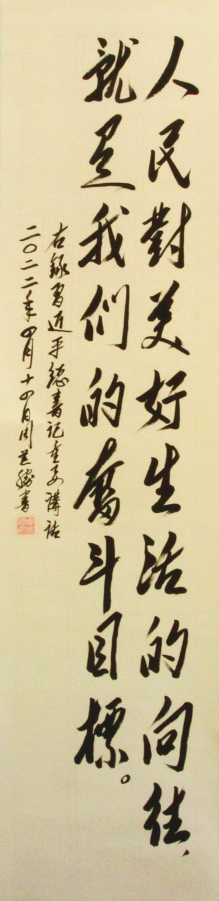 人民對美好生活的向往，
就是我們的奮斗目標。
右錄習近平總書記重要講話
二〇二二年四月十四日周